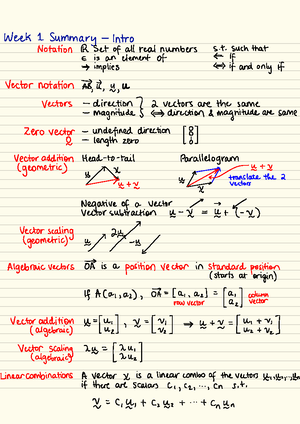 Week 1 Summary – Intro
Notation ℝ Set of all real numbers s.t. such that
∈ is an element of ⇐ if
→ implies ⇔ if and only if
Vector notation AB, u, v, u
Vectors – direction } 2 vectors are the same
– magnitude ⇔ direction & magnitude are same
Zero vector – undefined direction [0 0 ⋮ 0]
0 – length zero
Vector addition Head-to-tail Parallelogram
(geometric) u v u + v u v u + v
translate the 2 vectors
Negative of a vector
Vector subtraction u – v = u + (-v)
Vector scaling u 2u -u
(geometric)
Algebraic vectors OA is a position vector in standard position
(starts at origin)
If A(a₁, a₂), OA = [a₁, a₂] = [a₁ a₂] column vector
row vector
Vector addition u = [u₁ u₂], v = [v₁ v₂] → u + v = [u₁ + v₁ u₂ + v₂]
(algebraic)
Vector scaling λu = [λu₁ λu₂]
(algebraic)
Linear combinations A vector v is a linear combo of the vectors u₁, u₂, ..., uₙ
if there are scalars c₁, c₂, ..., cₙ s.t.
v = c₁u₁ + c₂u₂ + ··· + cₙuₙ